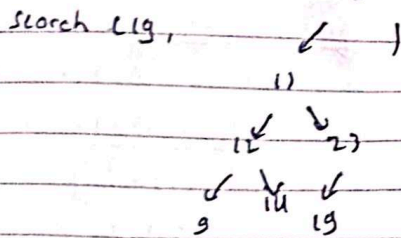 search (19,
12 23
9 14 19